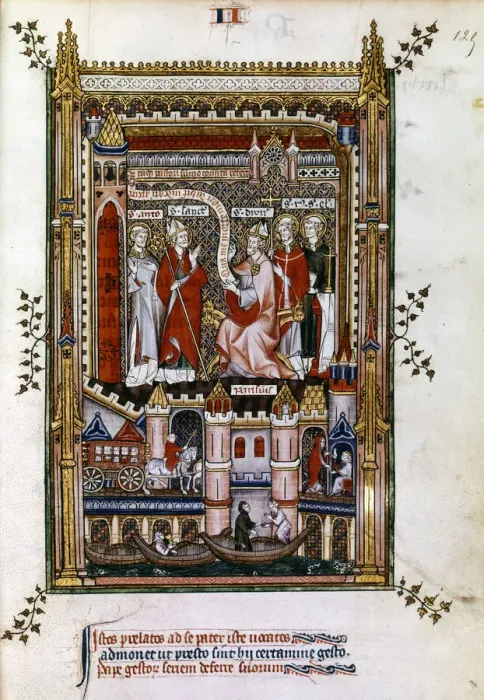 125
S. anto S. sanct S. dion
Parisius
Istos prelatos ad se pater iste uocatos
admonet ut presto sint hij certamine gesto.
Pape gestor seriem deferre suorum